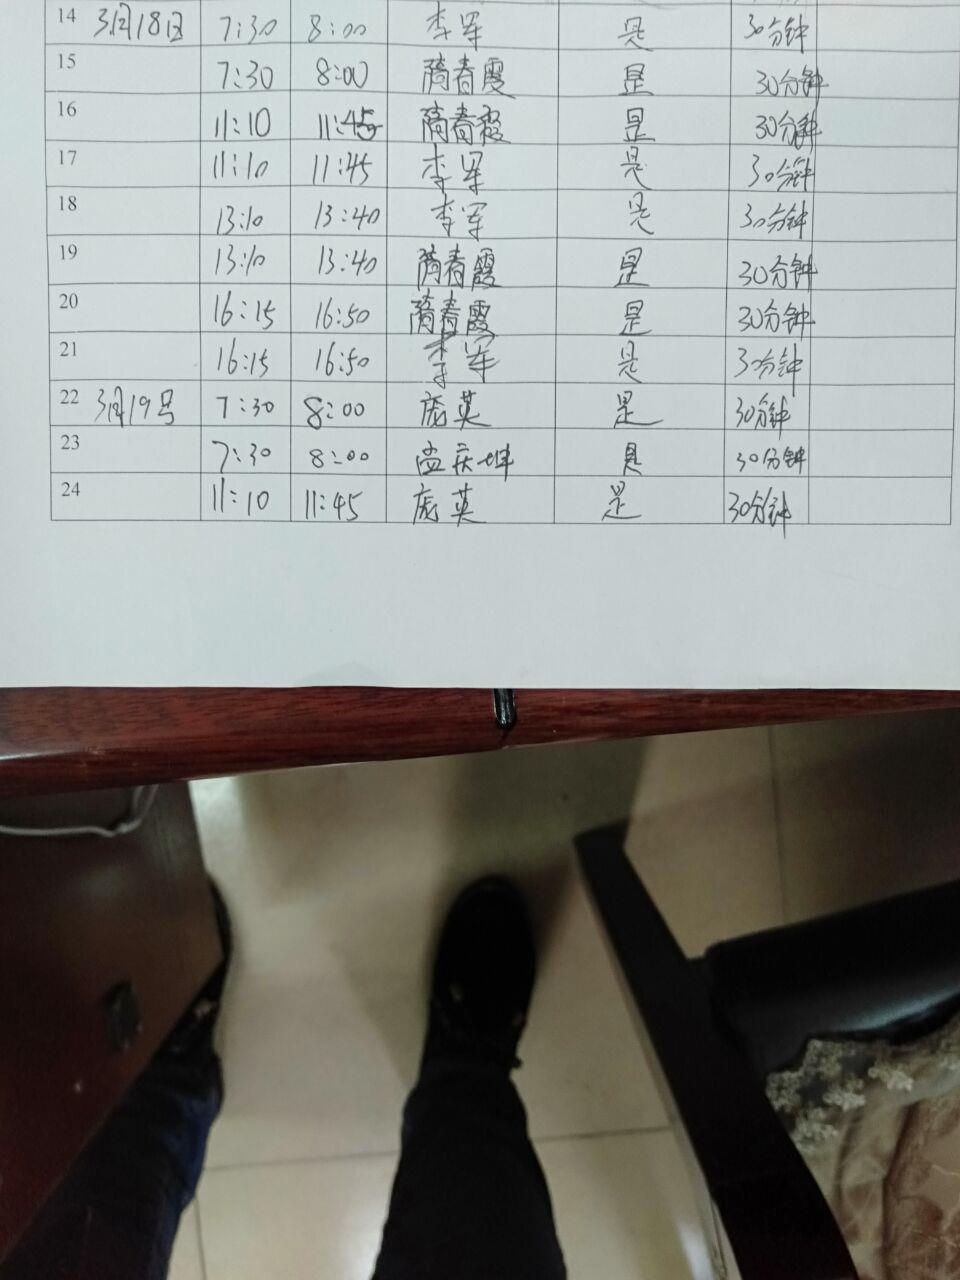 14 3月18日 7:30 8:00 李军 是 30分钟
15 7:30 8:00 隋春霞 是 30分钟
16 11:10 11:45 隋春霞 是 30分钟
17 11:10 11:45 李军 是 30分钟
18 13:10 13:40 李军 是 30分钟
19 13:10 13:40 隋春霞 是 30分钟
20 16:15 16:50 隋春霞 是 30分钟
21 16:15 16:50 李军 是 30分钟
22 3月19号 7:30 8:00 庞英 是 30分钟
23 7:30 8:00 孟庆坤 是 30分钟
24 11:10 11:45 庞英 是 30分钟